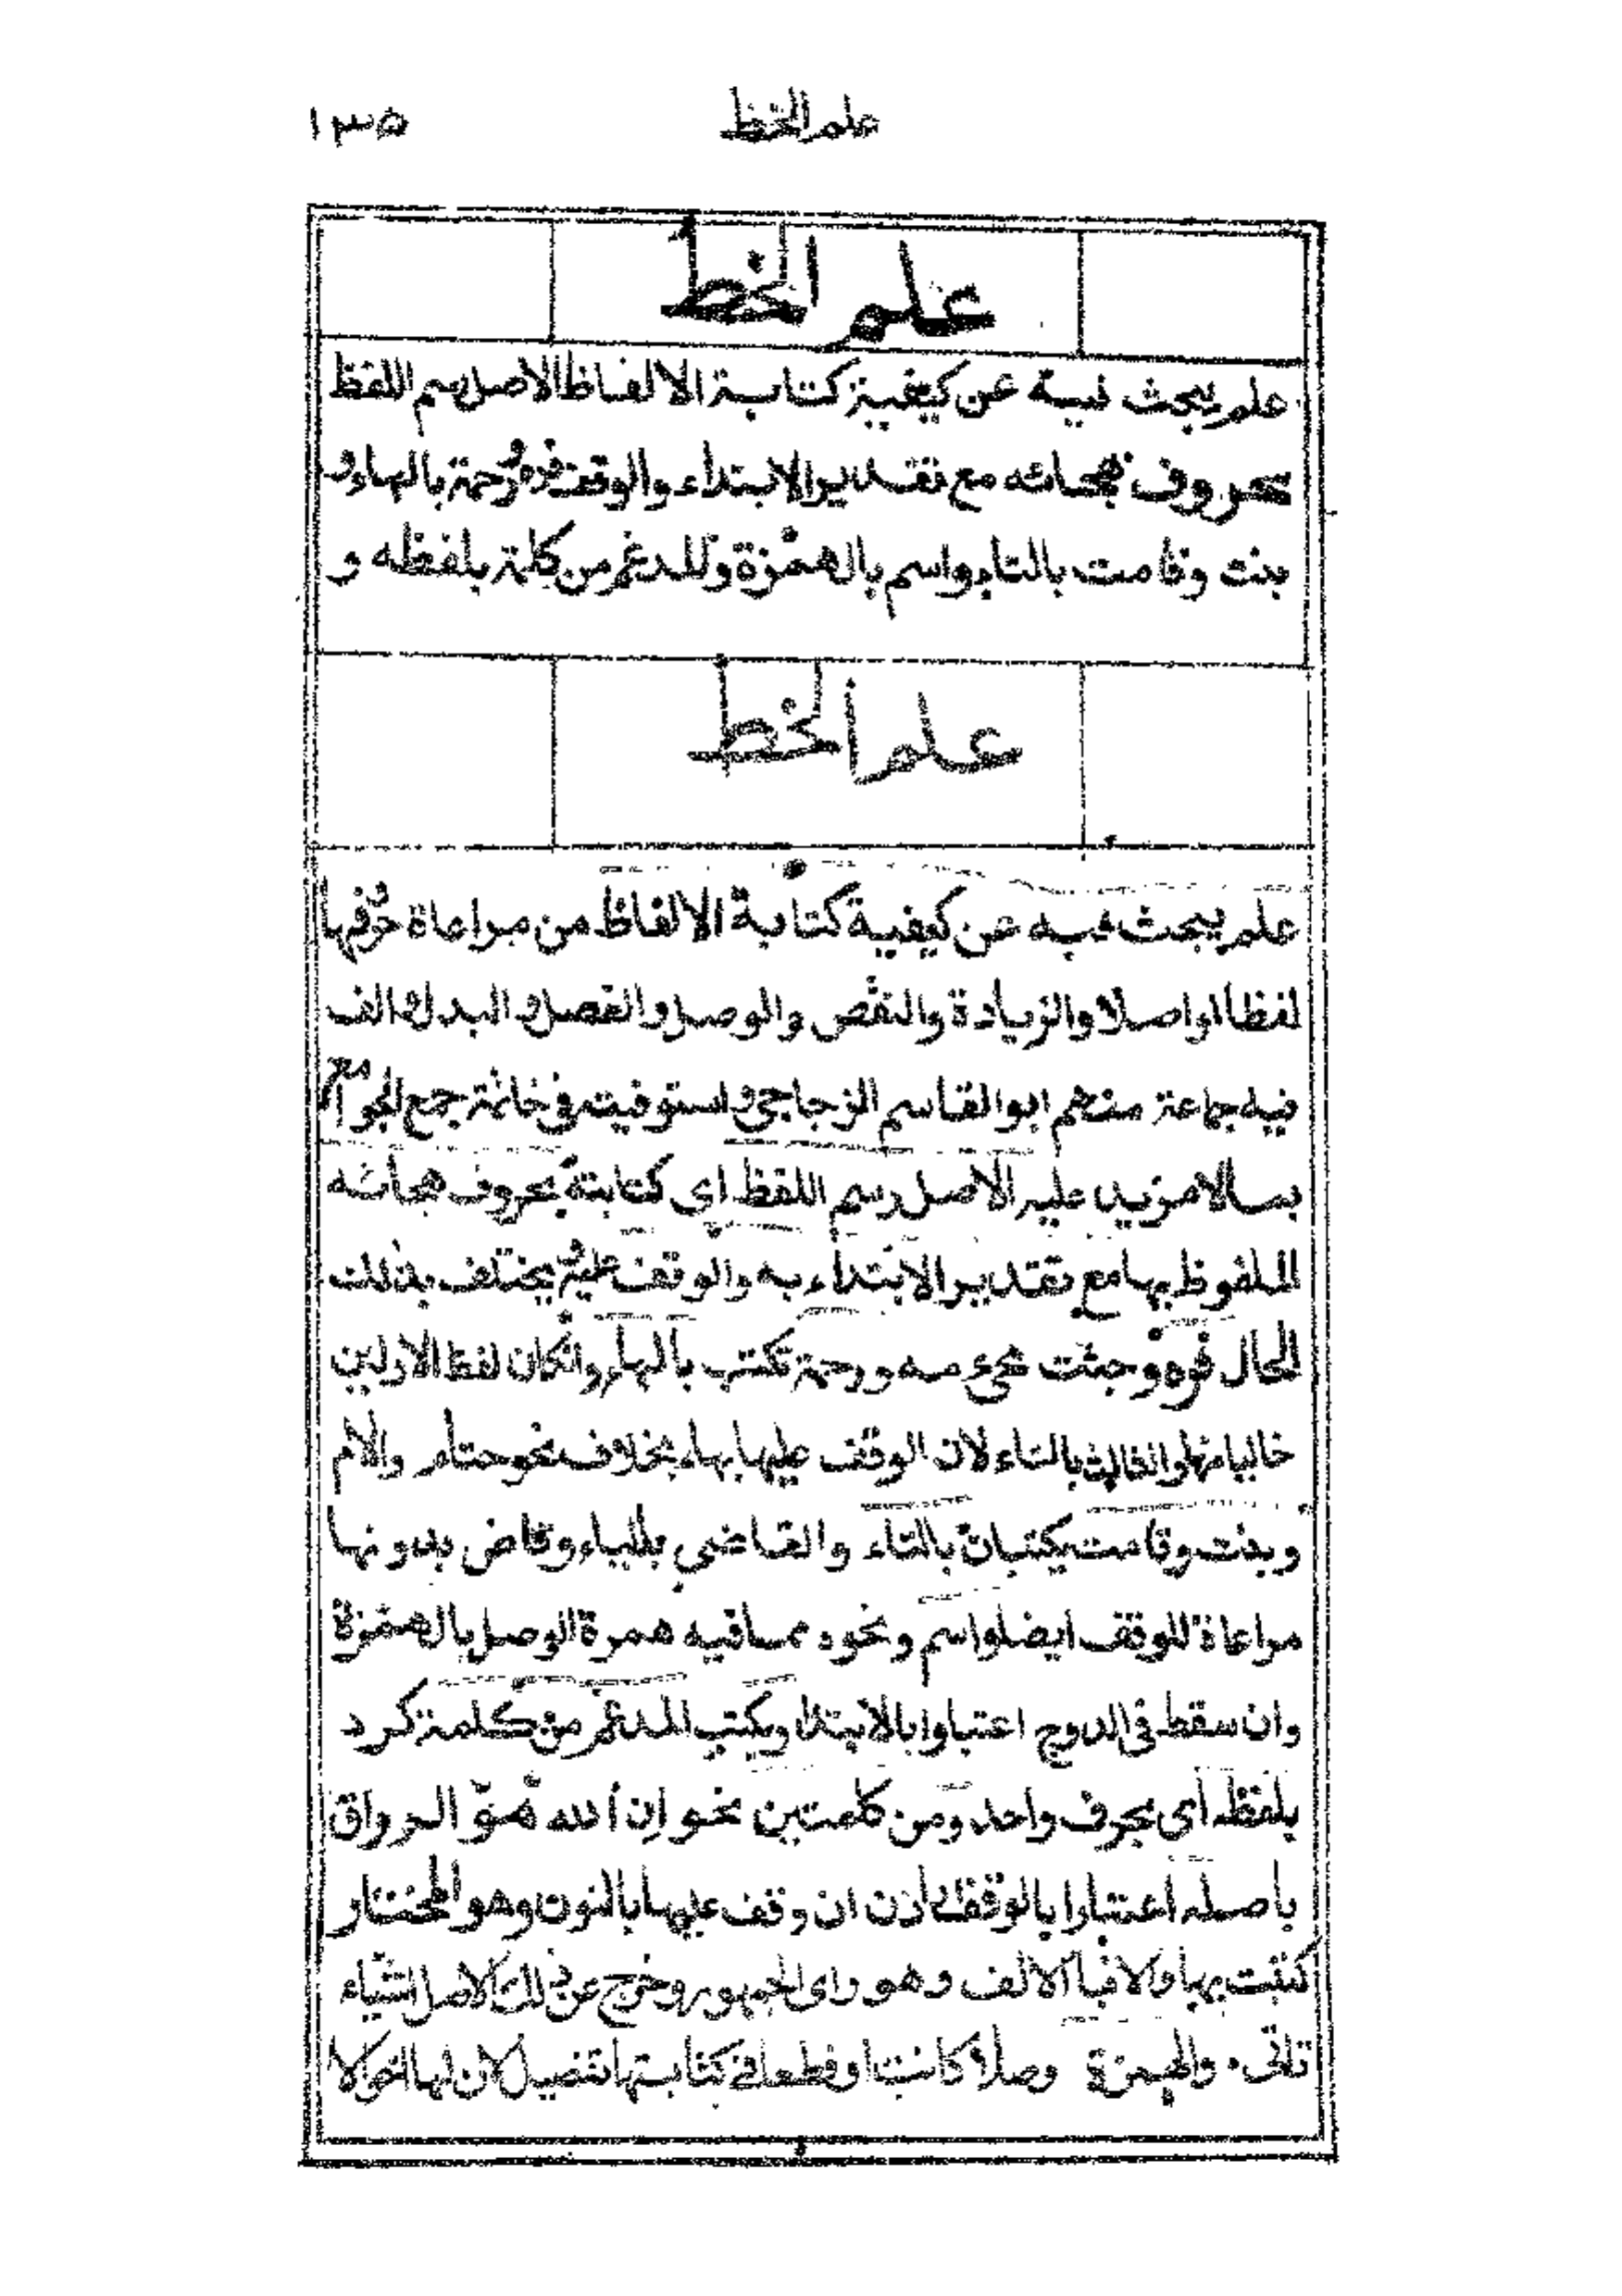 علم الخط
١٣٥
علم الخط
علم يبحث فيه عن كيفية كتابة الالفاظ الاصل رسم اللفظ
بحروف هجائه مع تقدير الابتداء والوقف فره ورحمة بالهاء و
بنت وقامت بالتاء واسم بالهمزة والمدغم من كلمة بلفظه و
علم الخط
علم يبحث فيه عن كيفية كتابة الالفاظ من مراعاة حروفها
لفظا او اصلا والزيادة والنقص والوصل والفصل والبدل والف
فيه جماعة منهم ابو القاسم الزجاجي واستوفيته في خاتمة جمع الجوامع
بما لا مزيد عليه الاصل رسم اللفظ اى كتابته بحروف هجائه
الملفوظ بها مع تقدير الابتداء به والوقف عليه يختلف بذلك
الحال فره وجئت مجئ مه ورحمة تكتب بالهاء وانكان لفظ الاولين
خاليا منها والثالث بالتاء لان الوقف عليها بهاء بخلاف نحو حتام والام
وبنت وقامت يكتبان بالتاء والقاضي بالياء وقاض بدونها
مراعاة للوقف ايضا واسم ونحوه مما فيه همزة الوصل بالهمزة
وان سقط فى الدرج اعتبارا بالابتداء ويكتب المدغم من كلمة كرد
بلفظه أى بحرف واحد ومن كلمتين نحو إن أللّه هوّ الرزاق
باصله اعتبارا بالوقف اذن ان وقف عليها بالنون وهو المختار
كتبت بها والا فبا الالف وهو راى الجمهور وخرج عن ذلك الاصل اشياء
تاتى والهمزة وصلا كانت او قطعا فى كتابتها تفصيل لان لها احوالا